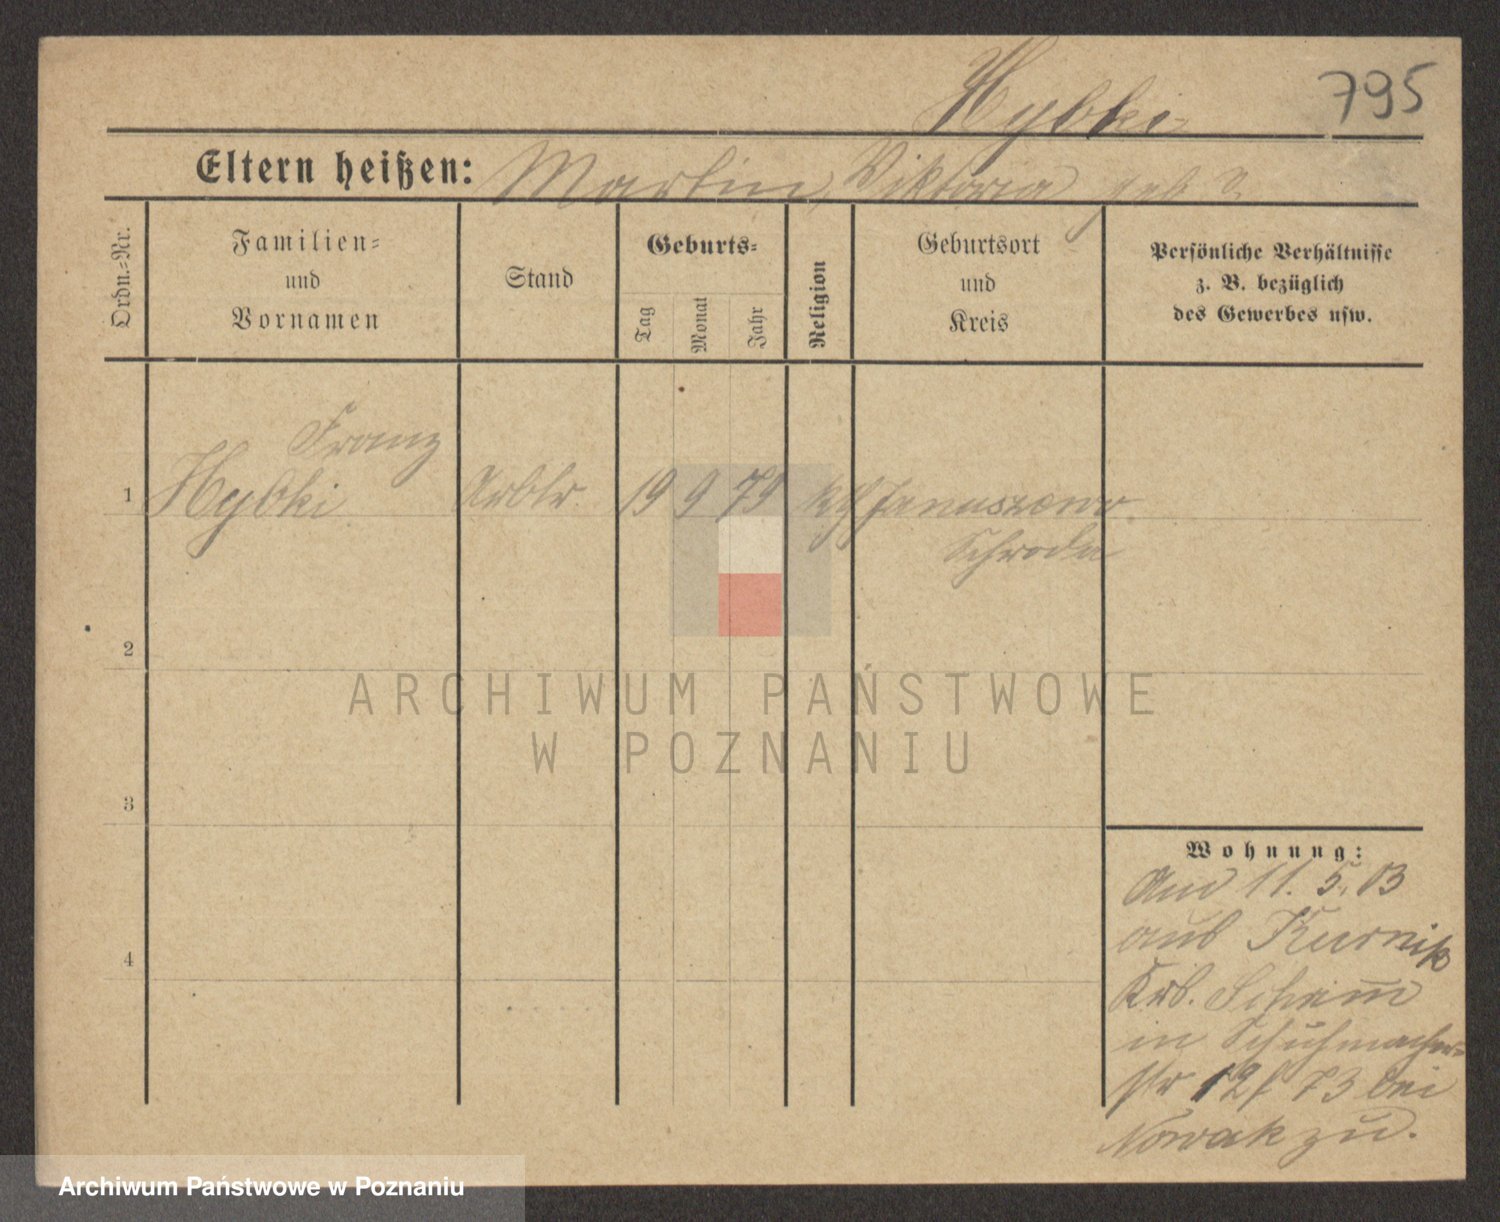 Hybki
795
Eltern heißen: Martin, Viktoria geb ?
Ordn.-Nr.
Familien-
und
Vornamen
Stand
Geburts-
Tag
Monat
Jahr
Religion
Geburtsort
und
Kreis
Persönliche Verhältnisse
z. B. bezüglich
des Gewerbes usw.
Franz
1 Hybki Arbtr 19 9 79 kth Januszewo
Schroda
2
3
4
Wohnung:
And 11. 5. 03
aus Kurnik
Krs. Schrimm
in Schuhmacher-
str 12 / 73 bei
Nowak zu.
ARCHIWUM PAŃSTWOWE
W POZNANIU
Archiwum Państwowe w Poznaniu